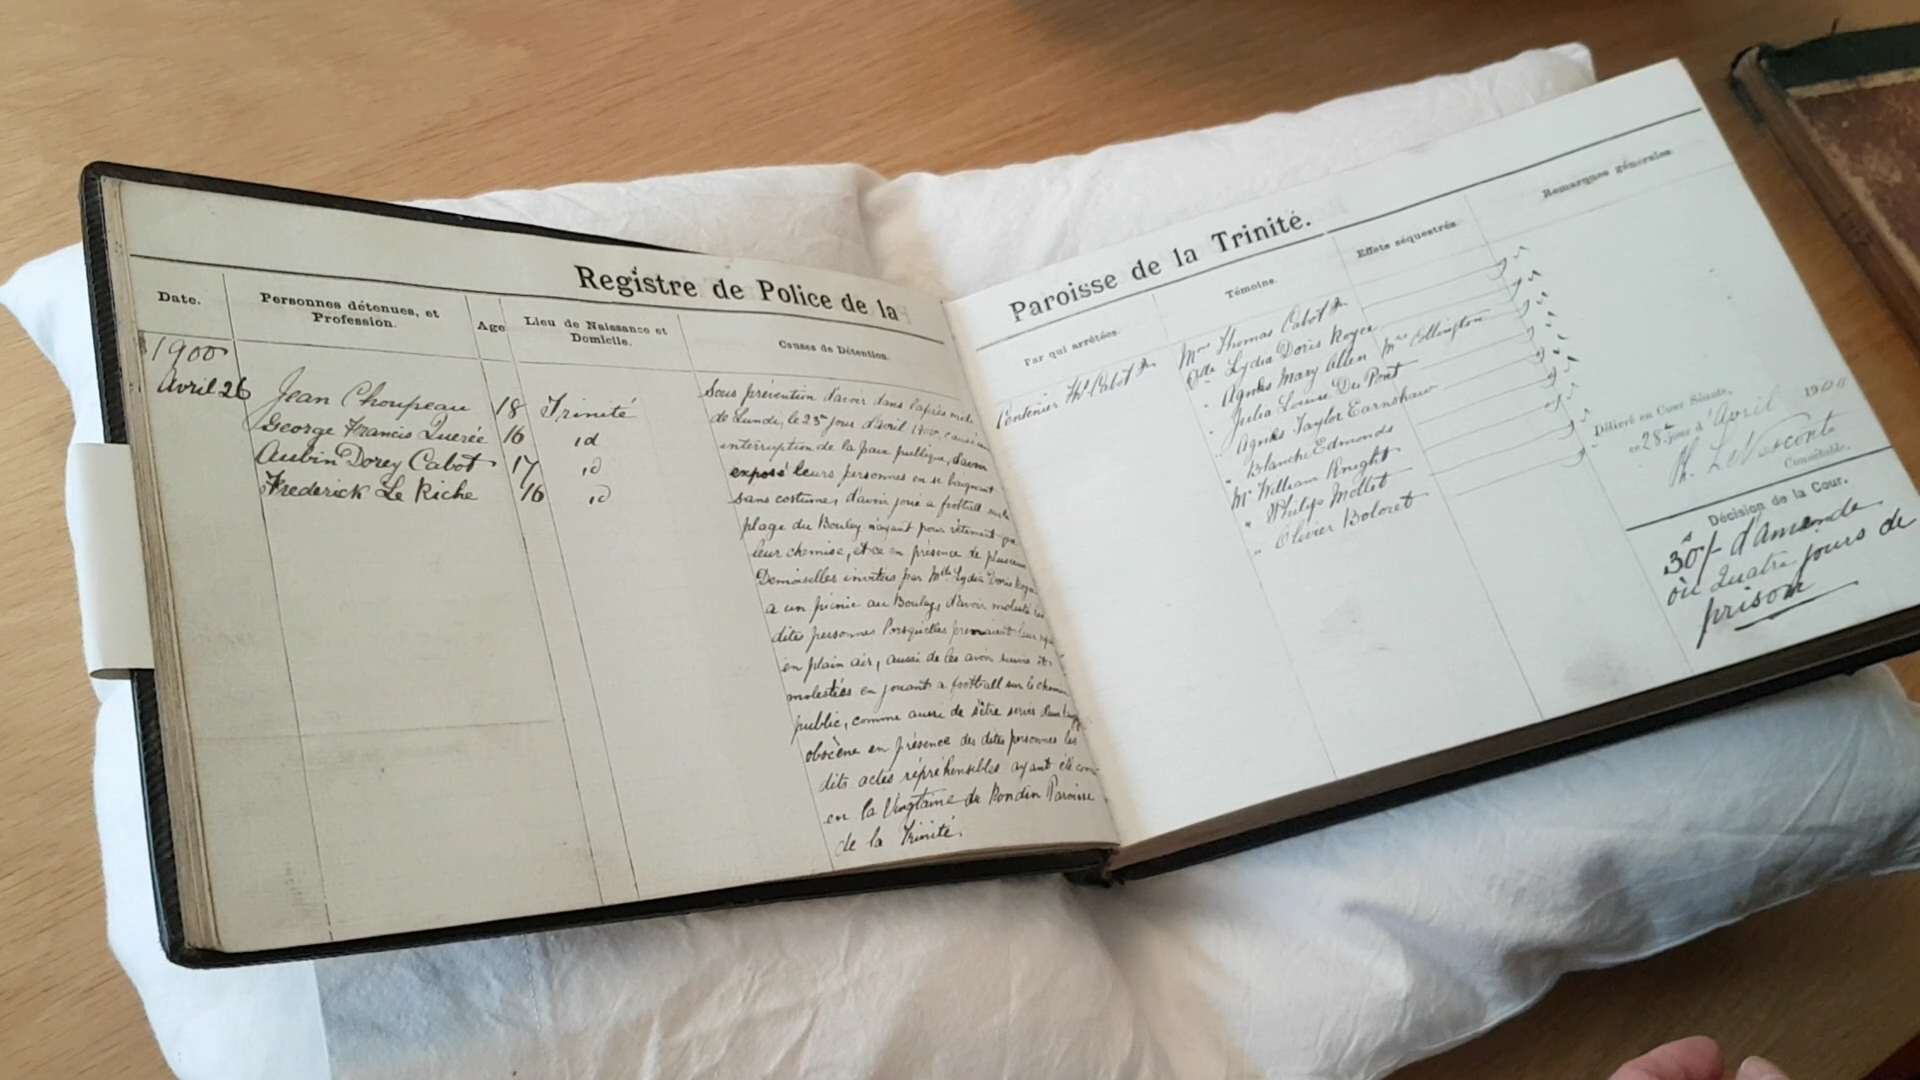 Registre de Police de la
Date.
Personnes détenues, et
Profession.
Age
Lieu de Naissance et
Domicile.
Causes de Détention.
1900
Avril 26
Jean Choupeau 18 Trinité
George Francis Querée 16 id
Aubin Dorey Cabot 17 id
Frederick Le Riche 16 id
Sous prévention d'avoir dans l'après midi
de Lundi, le 23 jour d'avril 1900, causé une
interruption de la paix publique, d'avoir
exposé leurs personnes en se baignant
sans costumes, d'avoir joué a football sur la
plage du Bouley n'ayant pour vêtement que
leur chemise, et ce en présence de plusieurs
Demoiselles invitées par Mlle Lydia Doris Royce
a un picnic au Bouley, d'avoir molesté les
dites personnes lorsqu'elles prenaient leur
en plein air, aussi de les avoir suivie et
molestées en jouant a football sur le chemin
public, comme aussi de s'être servis d'un
obscène en présence des dites personnes les
dits actes répréhensibles ayant été
en la Vingtaine du Rondin Paroisse
de la Trinité.
Paroisse de la Trinité.
Par qui arrêtées.
Témoins.
Effets séquestrés.
Remarques générales.
Centenier Ths. Cabot Jr
Thomas Cabot Jr
Lydia Doris Royce
" Agnes Mary Allen
" Julia Louise Du Pont
" Agnes Taylor Earnshaw
" Blanche Edmonds
Mr William Knight
" Philip Mollet
" Olivier Boloret
Délivré en Cour Séante,
ce 28 jour d'Avril 190
Le Vesconte
Connétable.
Décision de la Cour.
30/- d'amende
où quatre jours de
prison